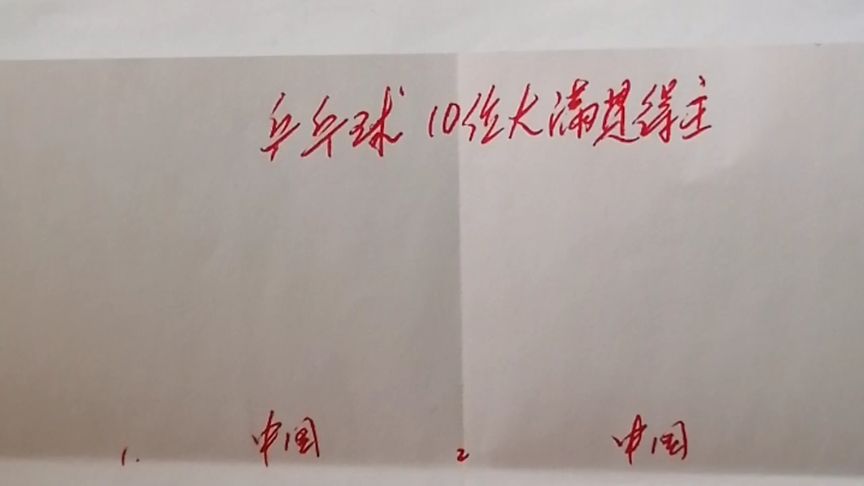 乒乓球 10位大满贯得主
1. 中国 2 中国